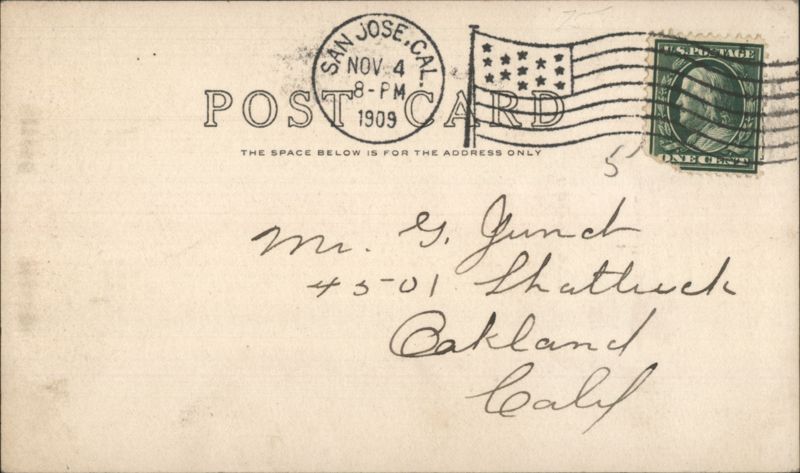 SAN JOSE, CAL.
NOV 4
8-PM
1909
U.S. POSTAGE
ONE CENT
POST CARD
THE SPACE BELOW IS FOR THE ADDRESS ONLY
5
Mr. G. Jundt
4501 Shattuck
Oakland
Calif